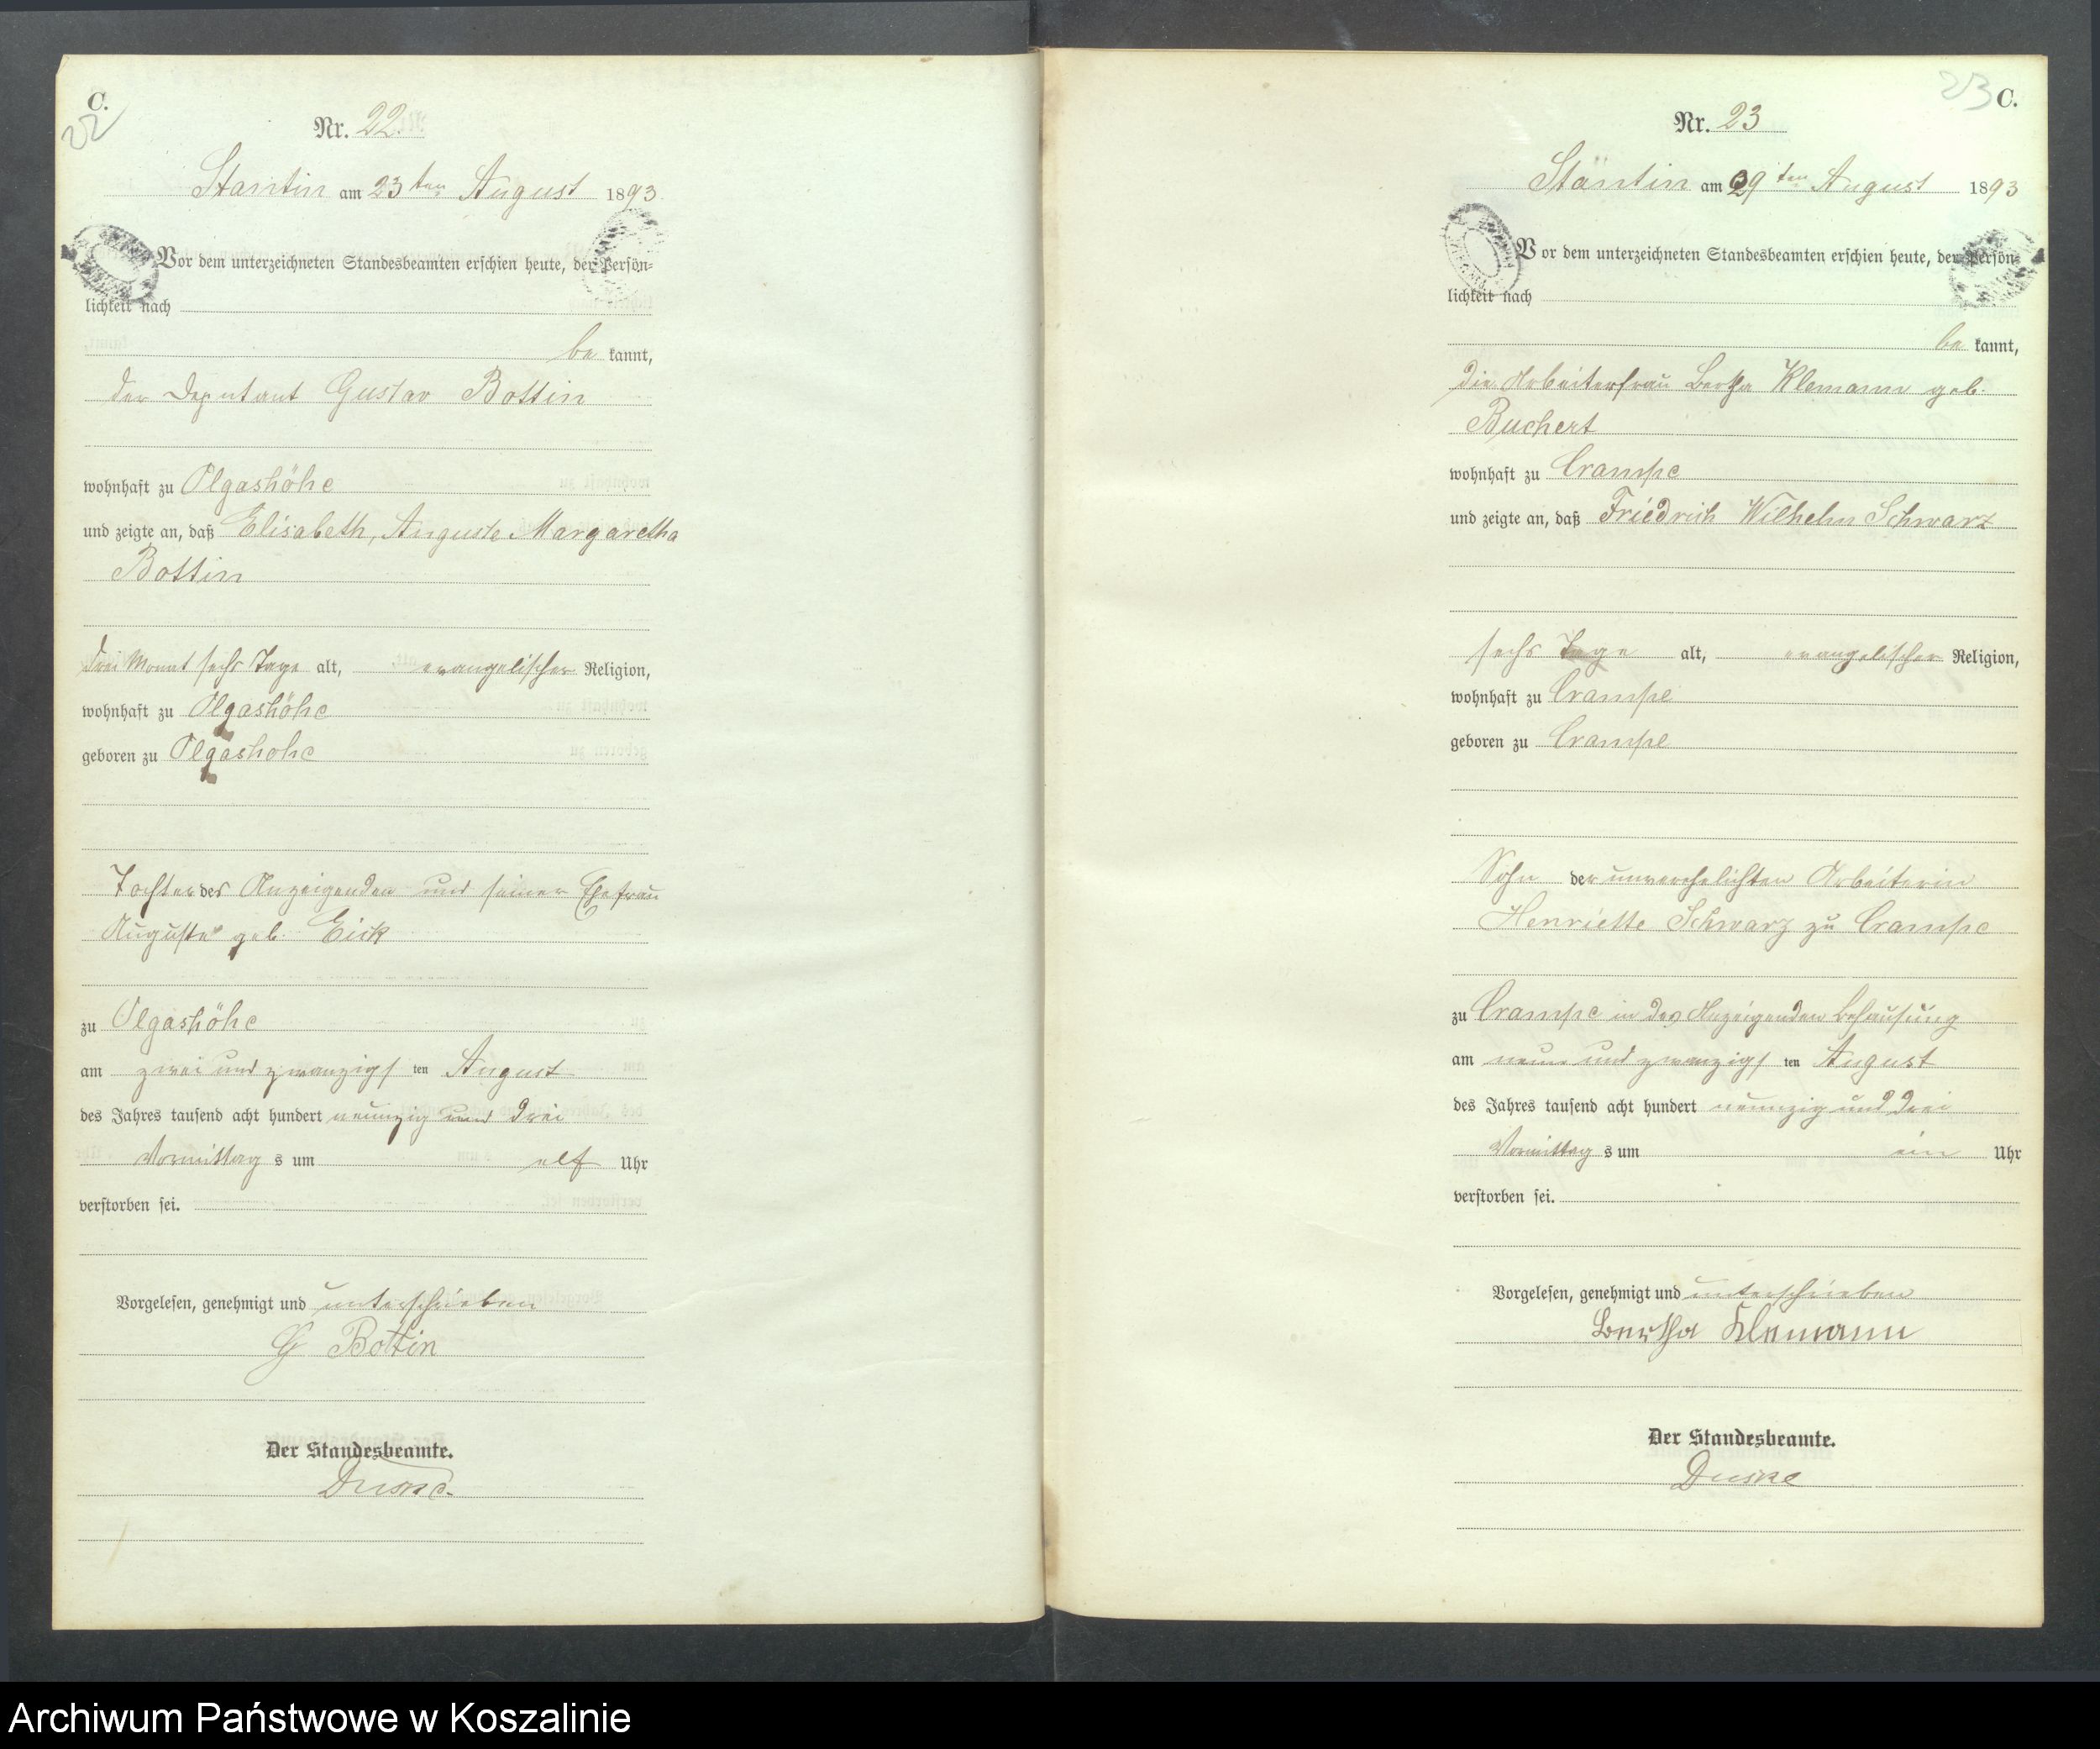 C.
22
Nr. 22.
Stantin am 23ten August 1893
Vor dem unterzeichneten Standesbeamten erschien heute, der Persön-
lichkeit nach
be kannt,
der Deputant Gustav Bottin
wohnhaft zu Olgashöhe
und zeigte an, daß Elisabeth, Auguste Margaretha
Bottin
drei Monat sechs Tage alt, evangelischer Religion,
wohnhaft zu Olgashöhe
geboren zu Olgashohe
Tochter des Anzeigenden und seiner Ehefrau
Auguste geb. Eick
zu Olgashöhe
am zwei und zwanzigsten August
des Jahres tausend acht hundert neunzig und drei
Vormittags um elf Uhr
verstorben sei.
Vorgelesen, genehmigt und unterschrieben
G Bottin
Der Standesbeamte.
Duske.
23 C.
Nr. 23
Stäntin am 29ten August 1893
Vor dem unterzeichneten Standesbeamten erschien heute, der Persön-
lichkeit nach
be kannt,
die Arbeiterfrau Bertha Klemann geb.
Buchert
wohnhaft zu Crampe
und zeigte an, daß Friedrich Wilhelm Schwarz
sechs Tage alt, evangelischer Religion,
wohnhaft zu Crampe
geboren zu Crampe
Sohn der unverehelichten Arbeiterin
Henriette Schwarz zu Crampe
zu Crampe in des Anzeigenden Behausung
am neun und zwanzigsten August
des Jahres tausend acht hundert neunzig und drei
Vormittags um ein Uhr
verstorben sei.
Vorgelesen, genehmigt und unterschrieben
Bertha Klemann
Der Standesbeamte.
Duske
Archiwum Państwowe w Koszalinie